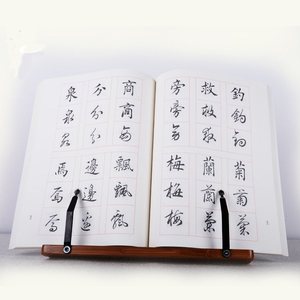 釣釣釣菊菊菊
救救救蘭蘭蘭
旁旁旁梅梅梅
商商商飄飄飄
分分分邊邊邊
泉泉泉焉焉焉